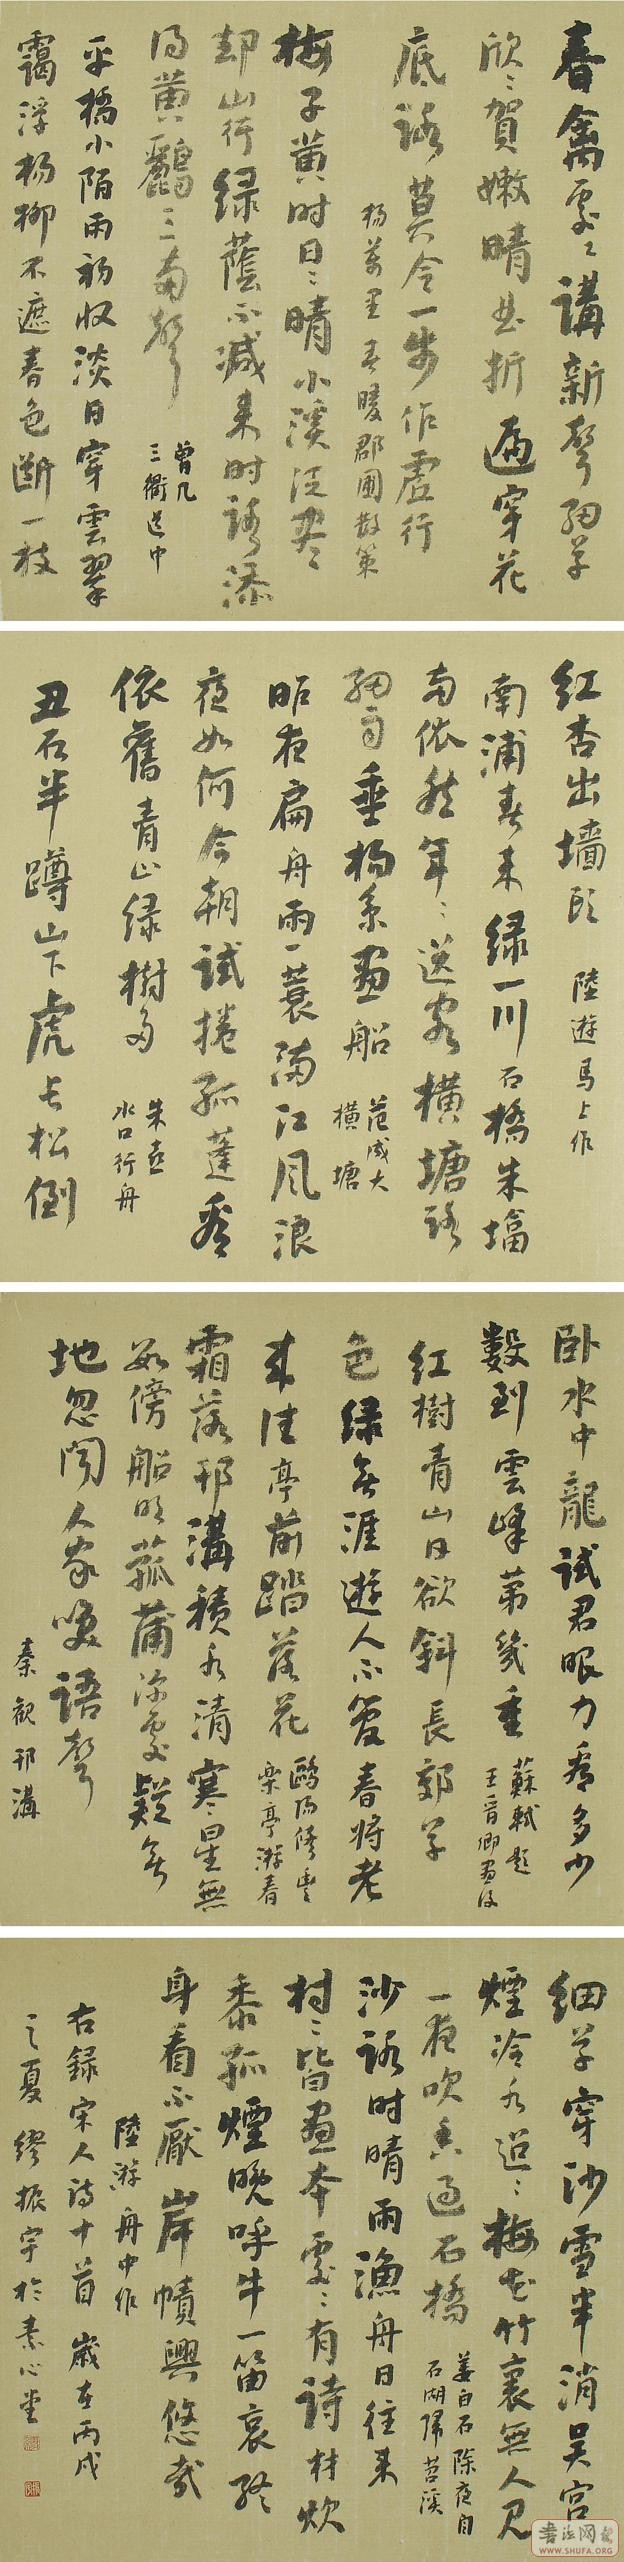 春禽處々講新聲細草
欣々賀嫩晴曲折遍穿花
底路莫令一步作虛行
楊萬里春暖郡圃散策
梅子黃時日々晴小溪泛盡
却山行綠蔭不減來時路添
得黃鸝三兩聲
曾几
三衢道中
平橋小陌雨初收淡日穿雲翠
靄浮楊柳不遮春色斷一枝
紅杏出墙頭 陸遊馬上作
南浦春來綠一川石橋朱塔
兩依然年々送客橫塘路
細雨垂楊系畫船
范成大
橫塘
昨夜扁舟雨一蓑滿江風浪
夜如何今朝試捲孤蓬看
依舊青山綠樹多
朱熹
水口行舟
丑石半蹲山下虎長松倒
卧水中龍試君眼力看多少
數到雲峰第幾重
蘇軾題
王晉卿畫後
紅樹青山日欲斜長郊草
色綠無涯遊人不管春將老
來往亭前踏落花
鷗陽修豐
樂亭游春
霜落邗溝積水清寒星無
數傍船明菰蒲深處疑無
地忽聞人家笑語聲
秦觀邗溝
細草穿沙雪半消吳宮
煙冷水迢々梅花竹裏無人見
一夜吹香過石橋
姜白石除夜自
石湖歸苕溪
沙路時晴雨漁舟日往來
村々皆畫本處々有詩材炊
黍孤煙晚呼牛一笛哀終
身看不厭岸幘興悠哉
陸游舟中作
右錄宋人詩十首 歲在丙戌
之夏繆振宇於素心堂
WWW.SHUFA.ORG